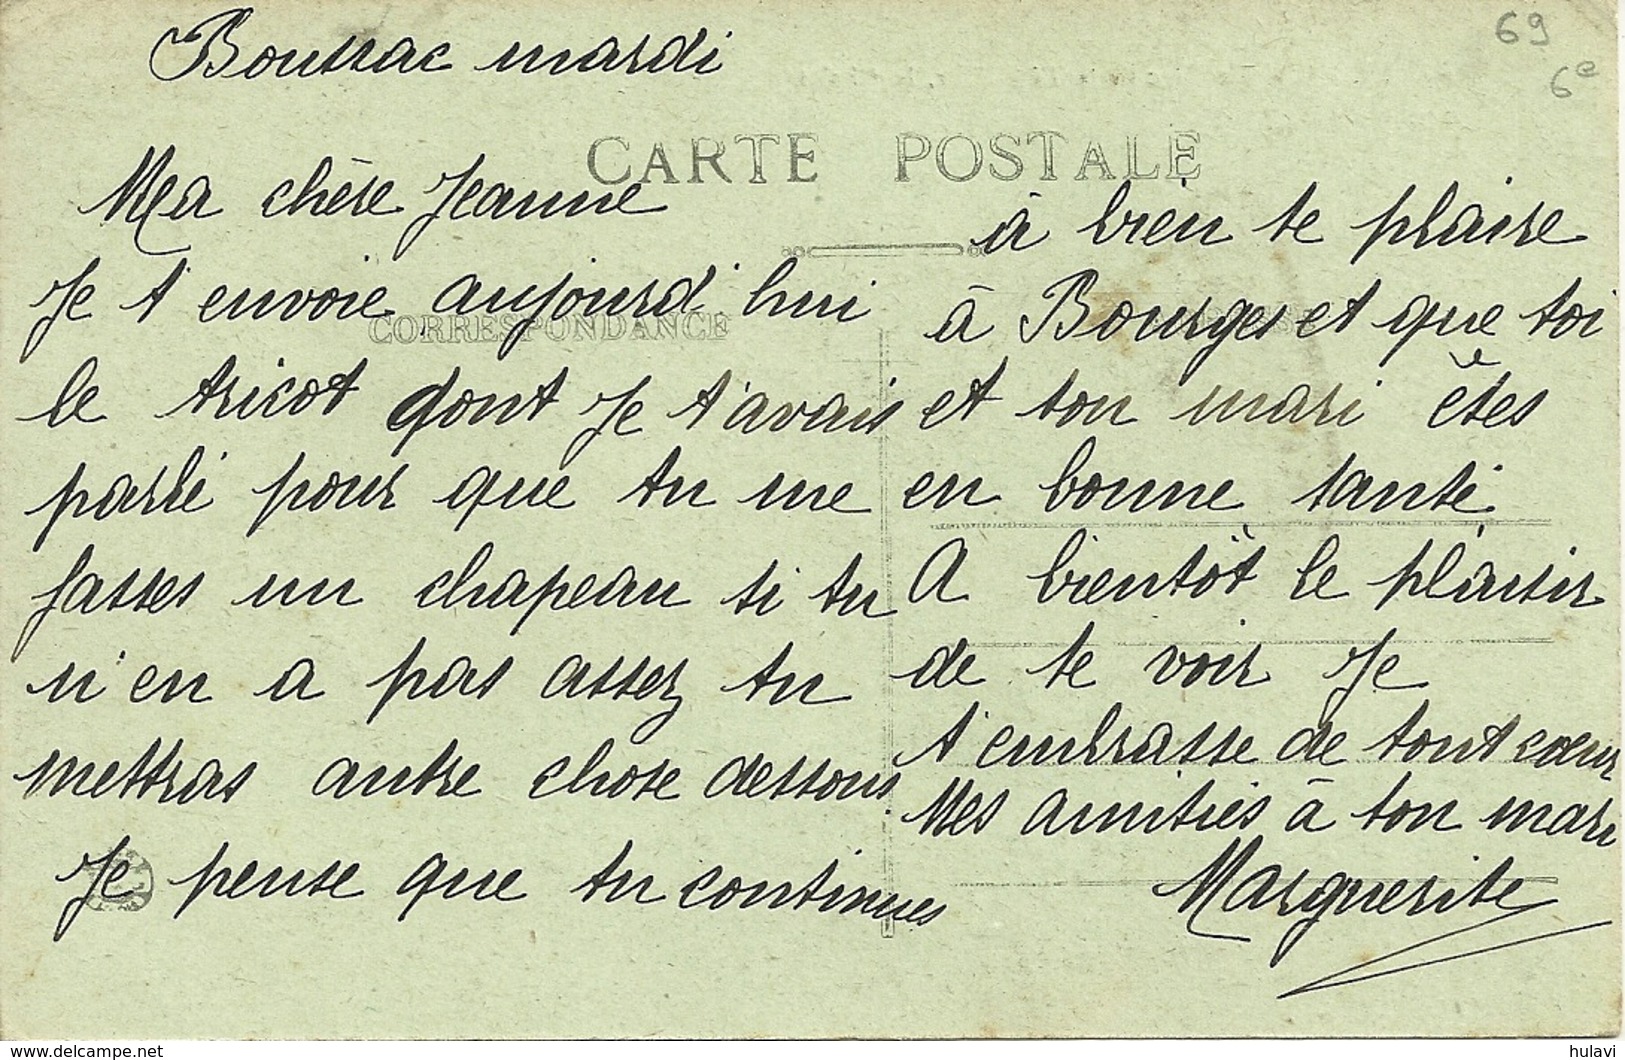 Boussac mardi
69
6e
CARTE POSTALE
Ma chère Jeanne
Je t'envoie aujourd'hui
CORRESPONDANCE
le tricot dont je t'avais
parlé pour que tu me
fasses un chapeau si tu
n'en a pas assez tu
mettras autre chose dessous.
Je pense que tu continues
à bien te plaire
à Bourges et que toi
et ton mari êtes
en bonne santé.
A bientôt le plaisir
de te voir Je
t'embrasse de tout cœur
Mes amitiés à ton mari
Marguerite
delcampe.net
hulavi